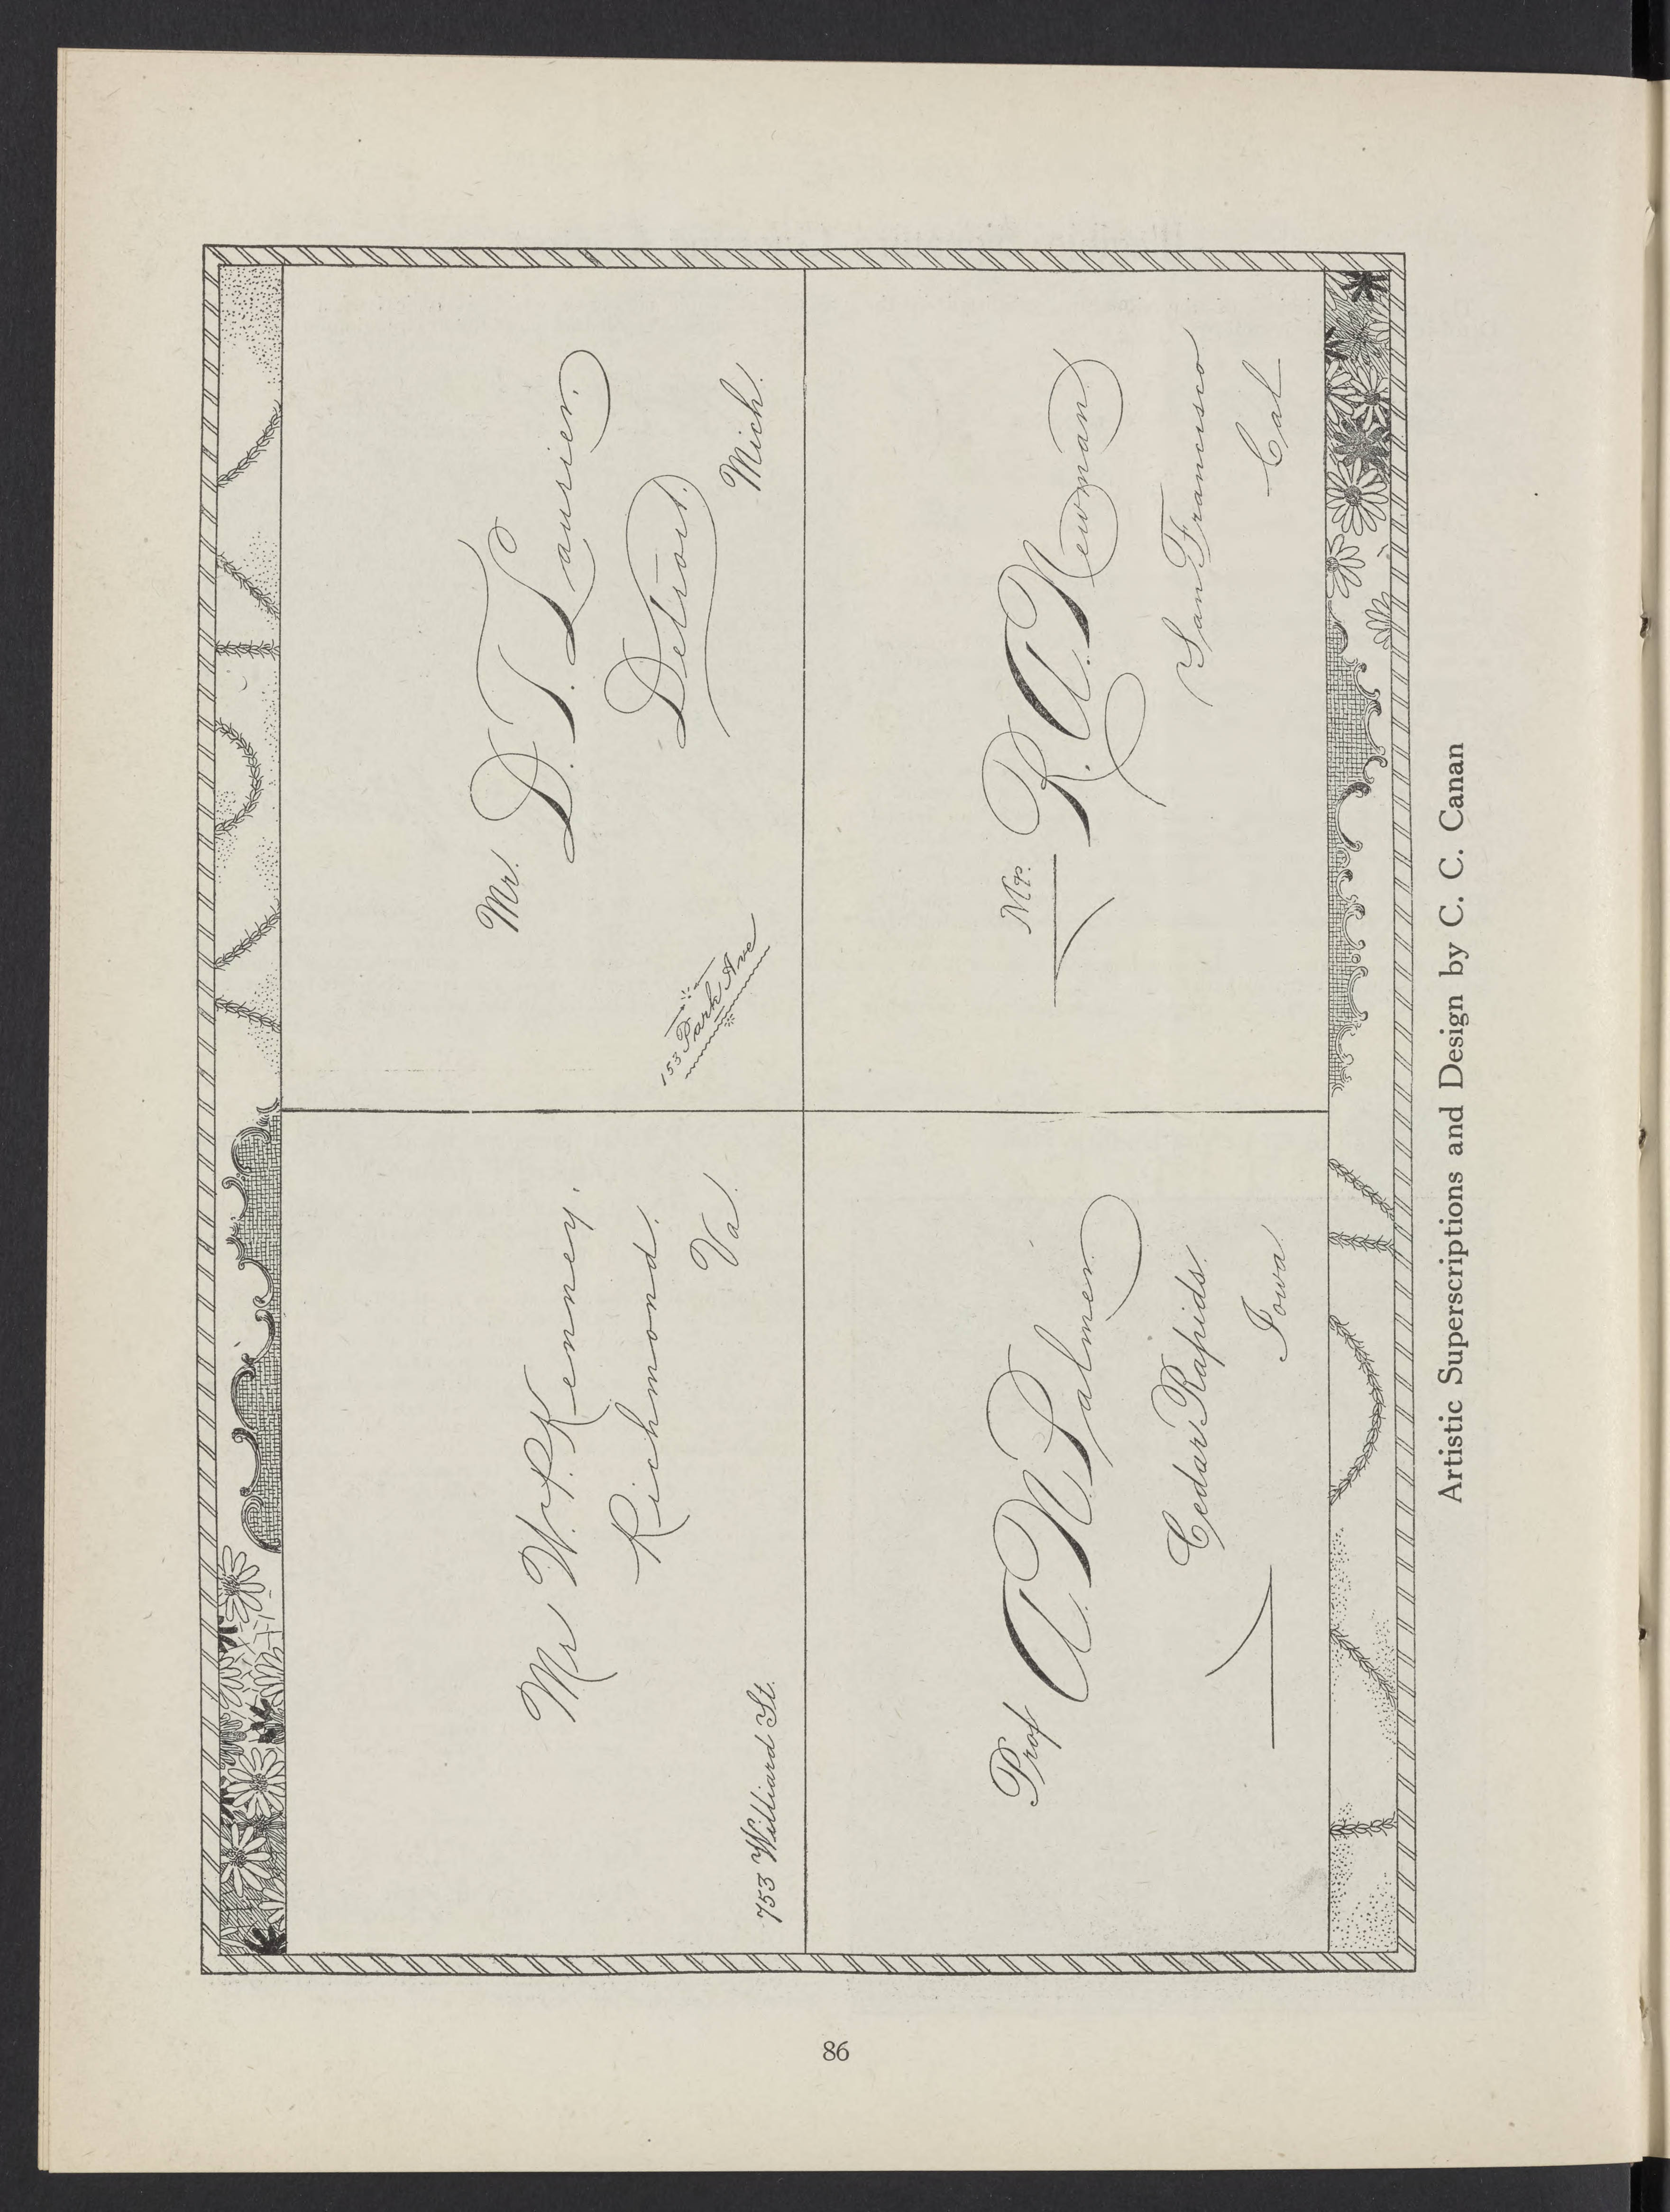 Mr W. P. Kenney.
Richmond.
Va.
753 Williard St.
Mr. D. T. Laurier.
Detroit.
Mich.
153 Park Ave
Prof A. N. Palmer.
Cedar Rapids.
Iowa.
Mr. R. A. Newman.
San Francisco
Cal
Artistic Superscriptions and Design by C. C. Canan
86